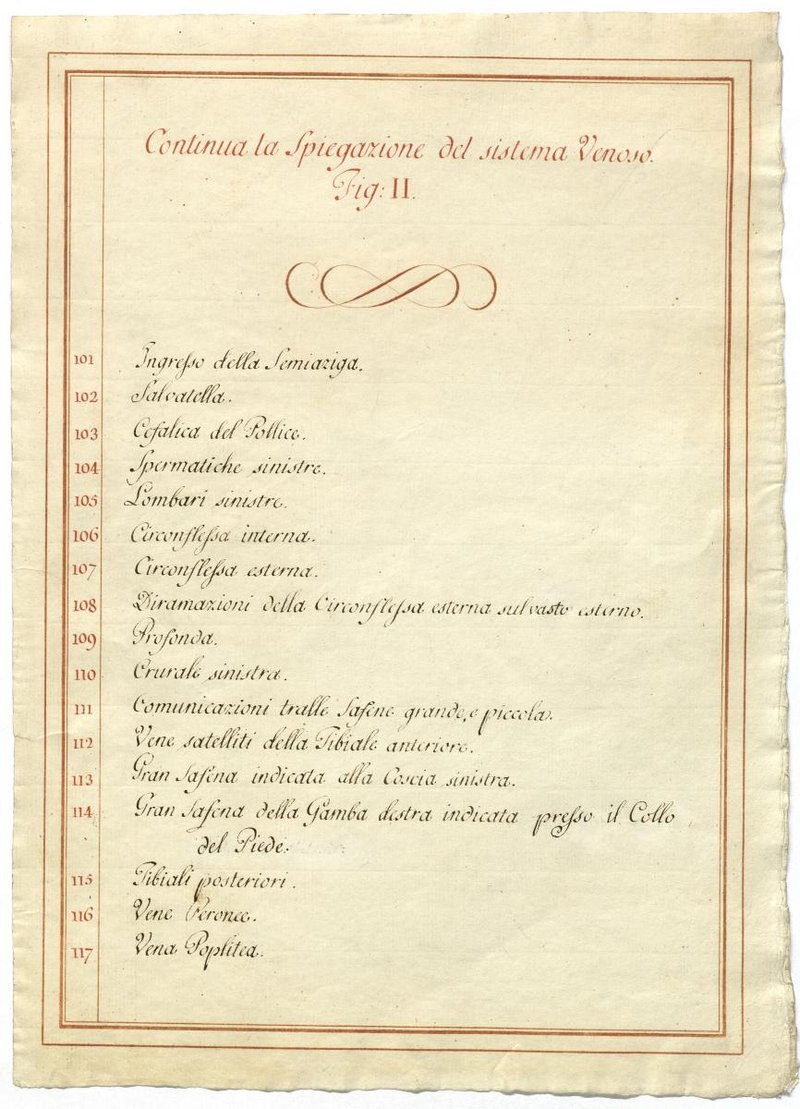 Continua la Spiegazione del sistema Venoso.
Fig: II.
101 Ingresso della Semiaziga.
102 Salvatella.
103 Cefalica del Pollice.
104 Spermatiche sinistre.
105 Lombari sinistre.
106 Circonflessa interna.
107 Circonflessa esterna.
108 Diramazioni della Circonflessa esterna sul vasto esterno.
109 Profonda.
110 Crurale sinistra.
111 Comunicazioni tralle Safene grande, e piccola.
112 Vene satelliti della Tibiale anteriore.
113 Gran Safena indicata alla Coscia sinistra.
114 Gran Safena della Gamba destra indicata presso il Collo
del Piede.
115 Tibiali posteriori.
116 Vene Peronee.
117 Vena Poplitea.